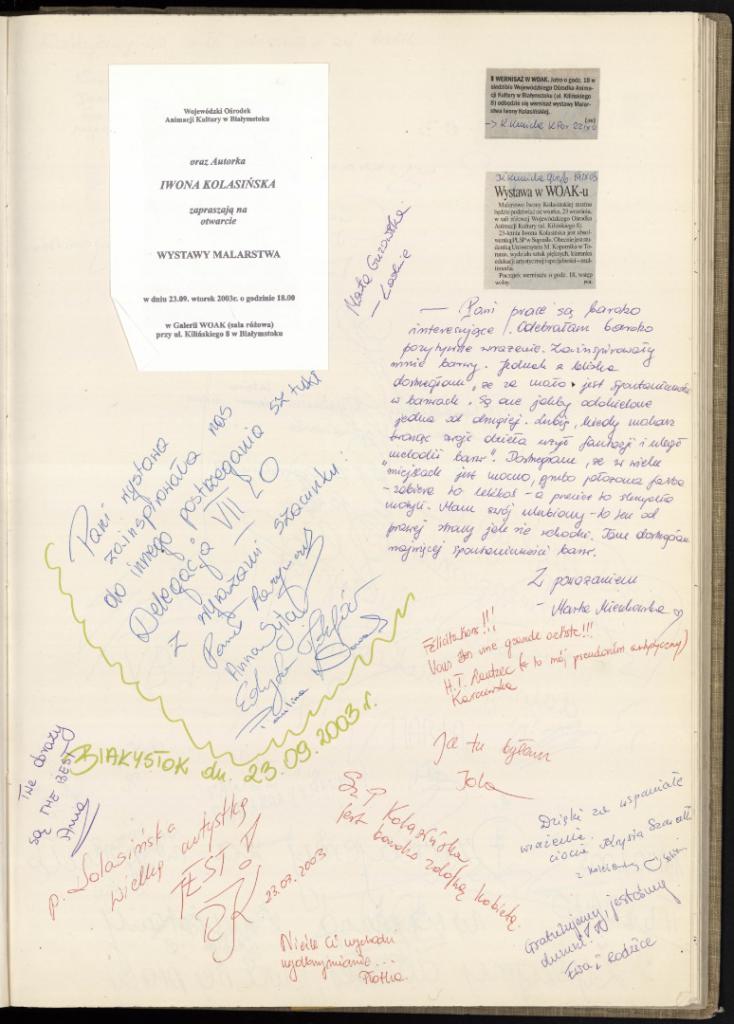 Wojewódzki Ośrodek
Animacji Kultury w Białymstoku
oraz Autorka
IWONA KOLASIŃSKA
zapraszają na
otwarcie
WYSTAWY MALARSTWA
w dniu 23.09. wtorek 2003r. o godzinie 18.00
w Galerii WOAK (sala różowa)
przy ul. Kilińskiego 8 w Białymstoku
WERNISAŻ W WOAK. Jutro o godz. 18 w
siedzibie Wojewódzkiego Ośrodka Anima-
cji Kultury w Białymstoku (ul. Kilińskiego
8) odbędzie się wernisaż wystawy Malar-
stwa Iwony Kolasińskiej.
Wystawa w WOAK-u
Malarstwo Iwony Kolasińskiej można
będzie podziwiać od wtorku, 23 września,
w sali różowej Wojewódzkiego Ośrodka
Animacji Kultury (ul. Kilińskiego 8).
23-letnia Iwona Kolasińska jest absol-
wentką PLSP w Supraślu. Obecnie jest stu-
dentką Uniwersytetu M. Kopernika w To-
runiu, wydziału sztuk pięknych, kierunku
edukacji artystycznej o specjalności – mul-
timedia.
Początek wernisażu o godz. 18, wstęp
wolny.
Kasia
– Ładnie
– Pani prace są bardzo
interesujące. Odebrałam bardzo
pozytywne wrażenie. Zainspirowały
mnie barwy. Jednak z bliska
dostrzegłam, że za mało jest spontaniczności
w barwach. Są one jakby oddzielone
jedna od drugiej. Lubię, kiedy malarz
tworząc swoje dzieła użył fantazji i uległ
melodii barw". Dostrzegłam, że w wielu
miejscach jest mocno, grubo położona farba
– zabiera to lekkość – a przecież to
motyli. Mam swój ulubiony – to ten od
prawej strony jakby schodki. Tam dostrzegłam
najwięcej spontaniczności barw.
Z poważaniem
– Marta
Pani wystawa
zainspirowała nas
do innego postrzegania sztuki
Delegacja VII LO
Z wyrazami szacunku:
Anna
Paulina
BIAŁYSTOK dn. 23.09.2003 r.
Felicitations!!!
Vous une grande artiste!!!
(to mój pseudonim artystyczny)
Ja tu byłam
Jola
THE obrazy
są THE BEST
Anna
p. Kolasińska
wielką artystką
JEST!
23.09.2003
Kolasińska
jest bardzo zdolną kobietą.
Dzięki za wspaniałe
wrażenie.
ciocia Krysia
Gratulujemy, jesteśmy
dumni!!!
Ewa i Rodzice